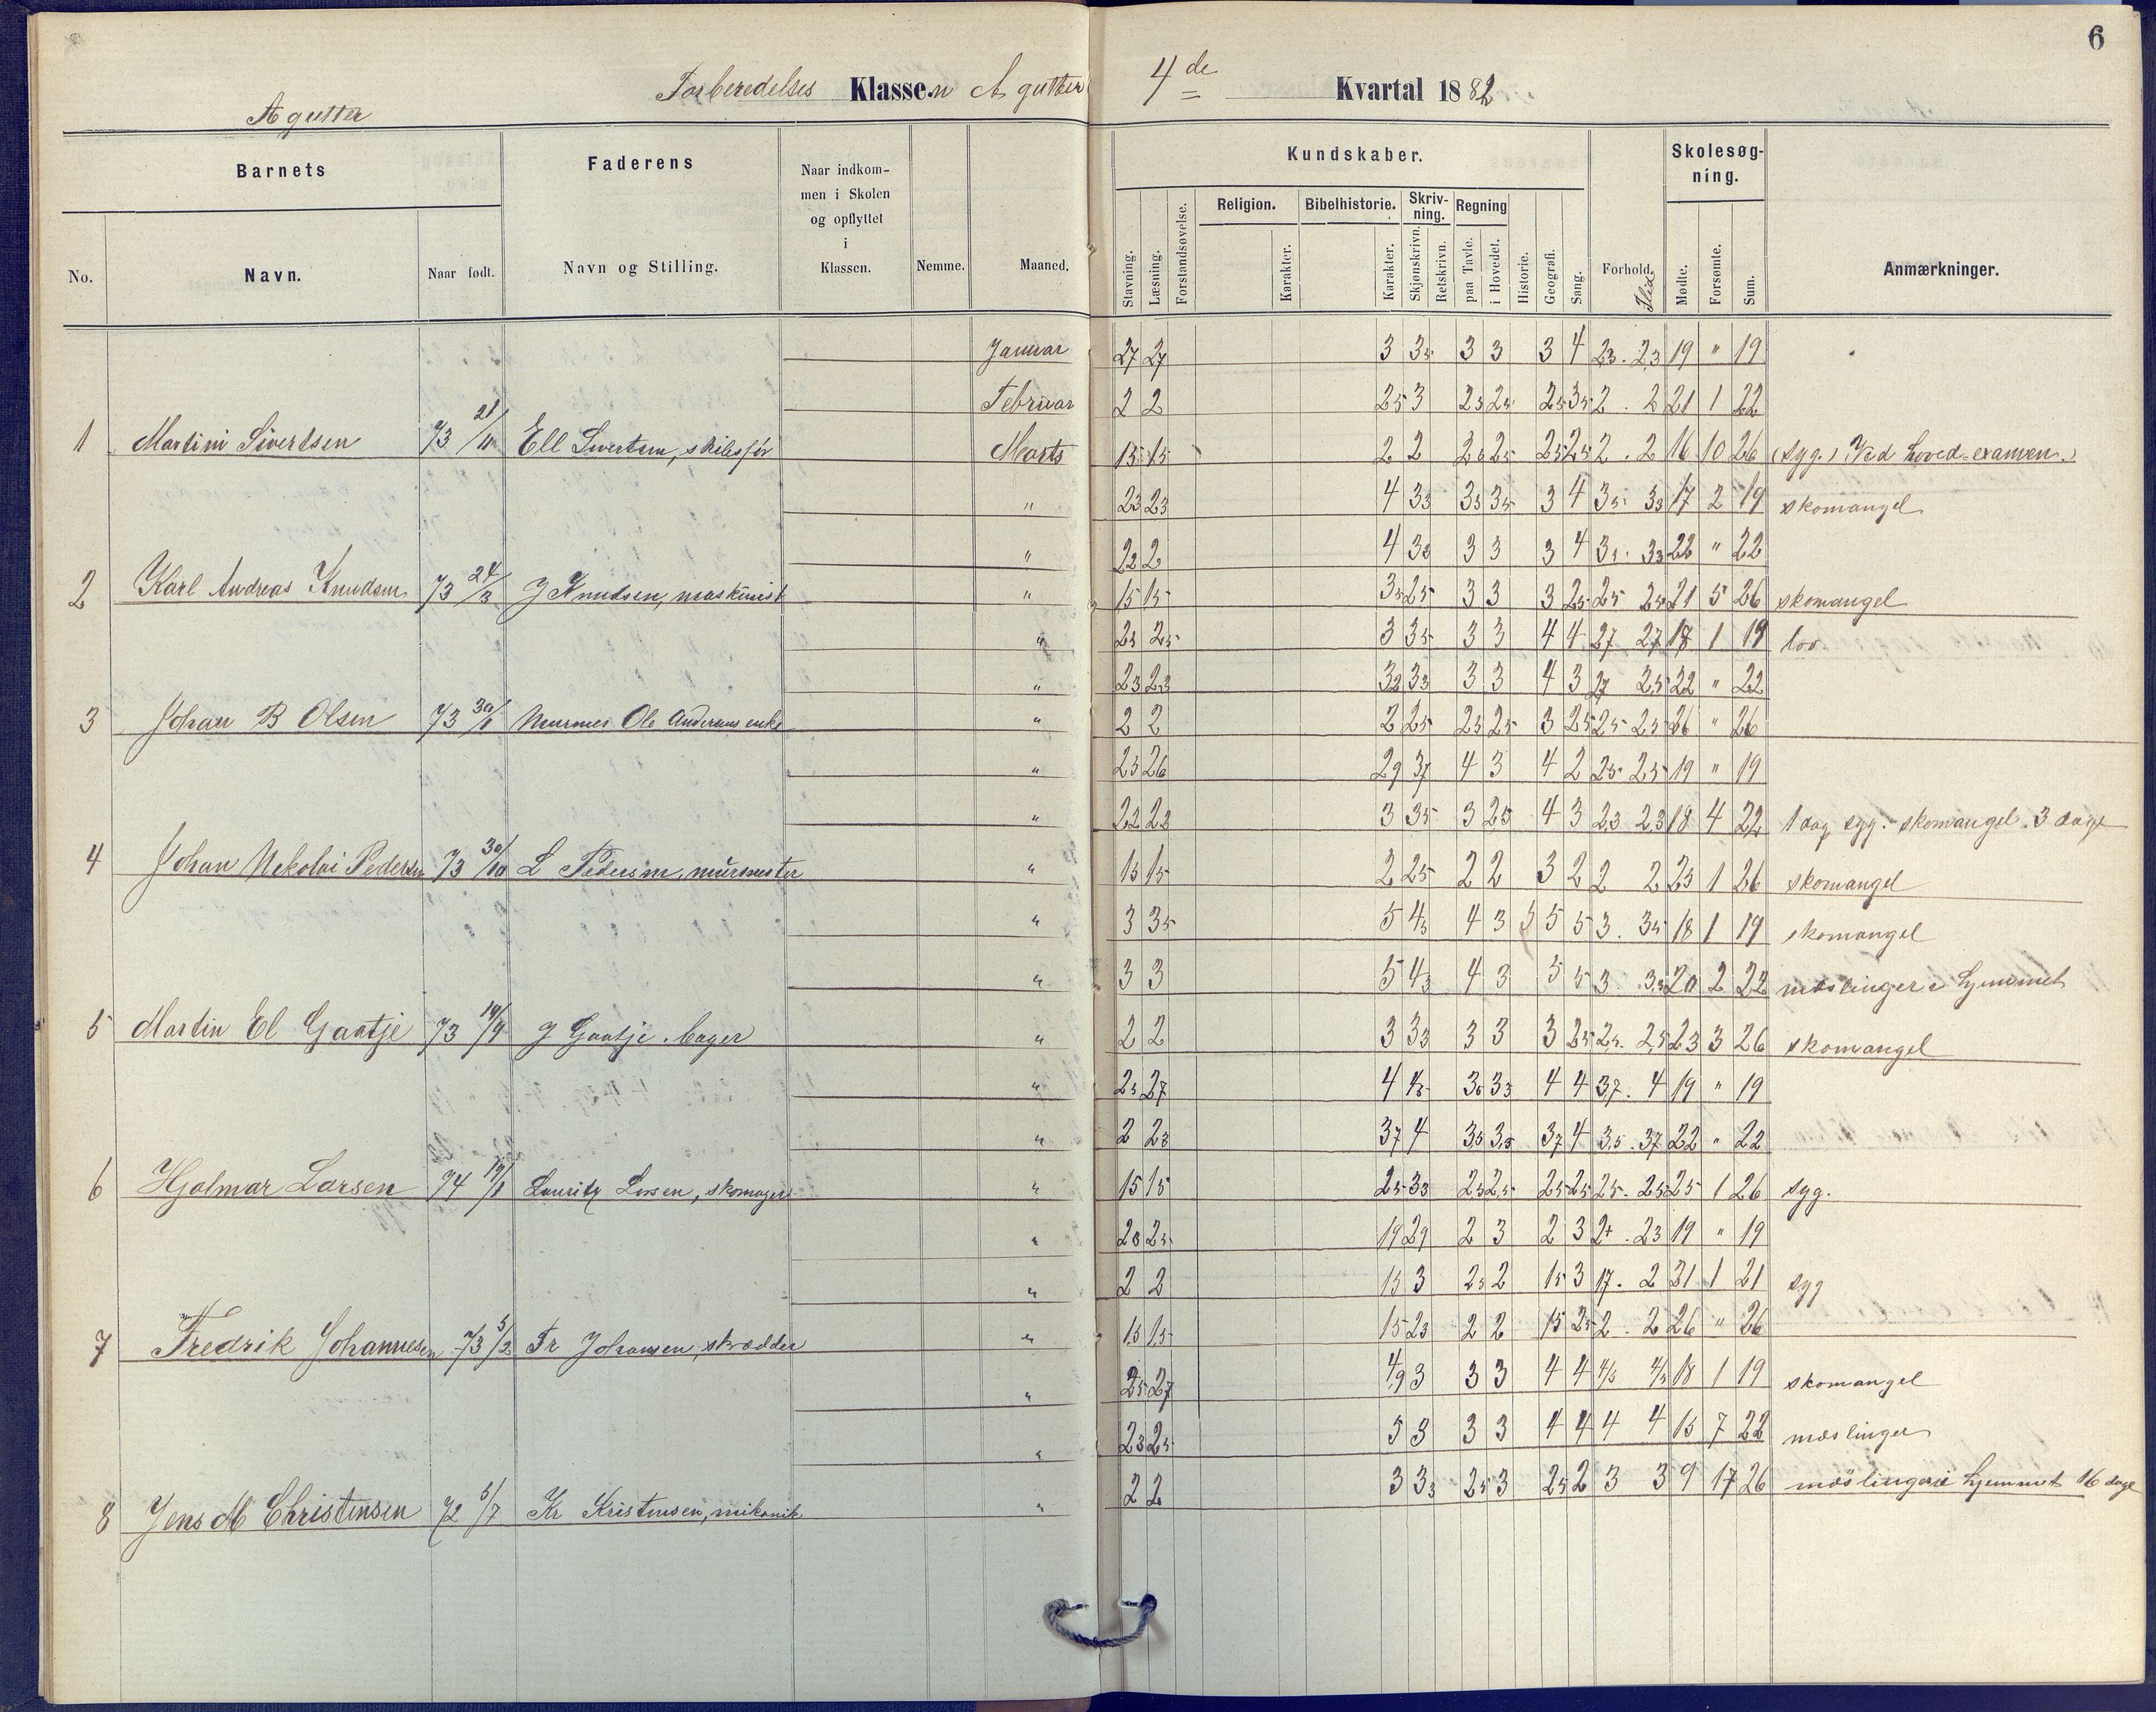 6
Forberedelses Klassen A gutter 4de Kvartal 1882
A gutter
Barnets Faderens Naar indkommen i Skolen og opflyttet i Klassen. Nemme. Maaned. Kundskaber. Forhold. Flid Skolesøgning. Anmærkninger.
No. Navn. Naar født. Navn og Stilling. Stavning. Læsning. Forstandsøvelse. Religion. Karakter. Bibelhistorie. Karakter. Skrivning. Skjønskrivn. Retskrivn. Regning paa Tavle. i Hovedet. Historie. Geografi. Sang. Mødte. Forsømte. Sum.
Januar 27 27 3 35 3 3 3 4 23. 23 19 " 19
Februar 2 2 25 3 25 25 25 35 2. 2 21 1 22
1 Martini Sivertsen 73 21/11 Ell Sivertsen, Marts 15 15 2 2 25 25 25 25 2. 2 16 10 26 (syg.) Ved hoved-examen.
" 23 23 4 33 33 35 3 4 35 33 17 2 19 skomangel
" 22 2 4 33 3 3 3 4 22 " 22
2 Karl Andreas Knudsen 73 24/3 J Knudsen, maskinist " 15 15 35 25 3 3 3 25 25 25 21 5 26 skomangel
" 25 25 3 35 3 3 4 4 27 27 18 1 19 lov
" 23 23 33 3 3 4 3 27 25 22 " 22
3 Johan B Olsen 73 30/1 Murmes Ole Andersens enke " 2 2 2 25 25 25 3 25 25 25 26 " 26
" 25 26 29 37 4 3 4 2 25 25 19 " 19
" 22 22 3 35 3 25 4 3 23 23 18 4 22 1 dag syg. skomangel 3 dage
4 Johan Nekolai Pedersen 73 30/10 L Pedersen, murmester " 15 15 2 25 2 2 3 2 2 2 25 1 26 skomangel
" 3 35 5 45 4 3 5 5 3. 35 18 1 19 skomangel
" 3 3 5 43 4 3 5 5 3. 33 20 2 22 mæslinger i hjemmet
5 Martin El Gaatje 73 19/9 J Gaatje. bager " 2 2 3 33 3 3 3 25 25. 25 23 3 26 skomangel
" 25 27 4 45 35 33 4 4 37. 4 19 " 19
" 2 23 37 4 35 35 37 4 35. 37 22 " 22
6 Hjalmar Larsen 74 19/1 Lauritz Larsen, skomager " 15 15 25 33 25 25 25 25 25. 25 25 1 26 syg.
" 23 25 19 29 2 3 2 3 2+. 23 19 " 19
" 2 2 15 3 25 2 15 3 17. 2 21 1 21 syg
7 Fredrik Johannesen 73 5/2 Fr Johansen, skrædder " 15 15 15 23 2 2 15 25 2. 2 26 " 26
" 25 27 49 3 3 3 4 4 45 45 18 1 19 skomangel
" 23 25 5 3 3 3 4 4 4 4 15 7 22 mæslinger
8 Jens M Christensen 72 5/7 Kr Kristensen, mikanik " 2 2 3 33 25 3 25 2 3 3 9 17 26 mæslinger i hjemmet 16 dage